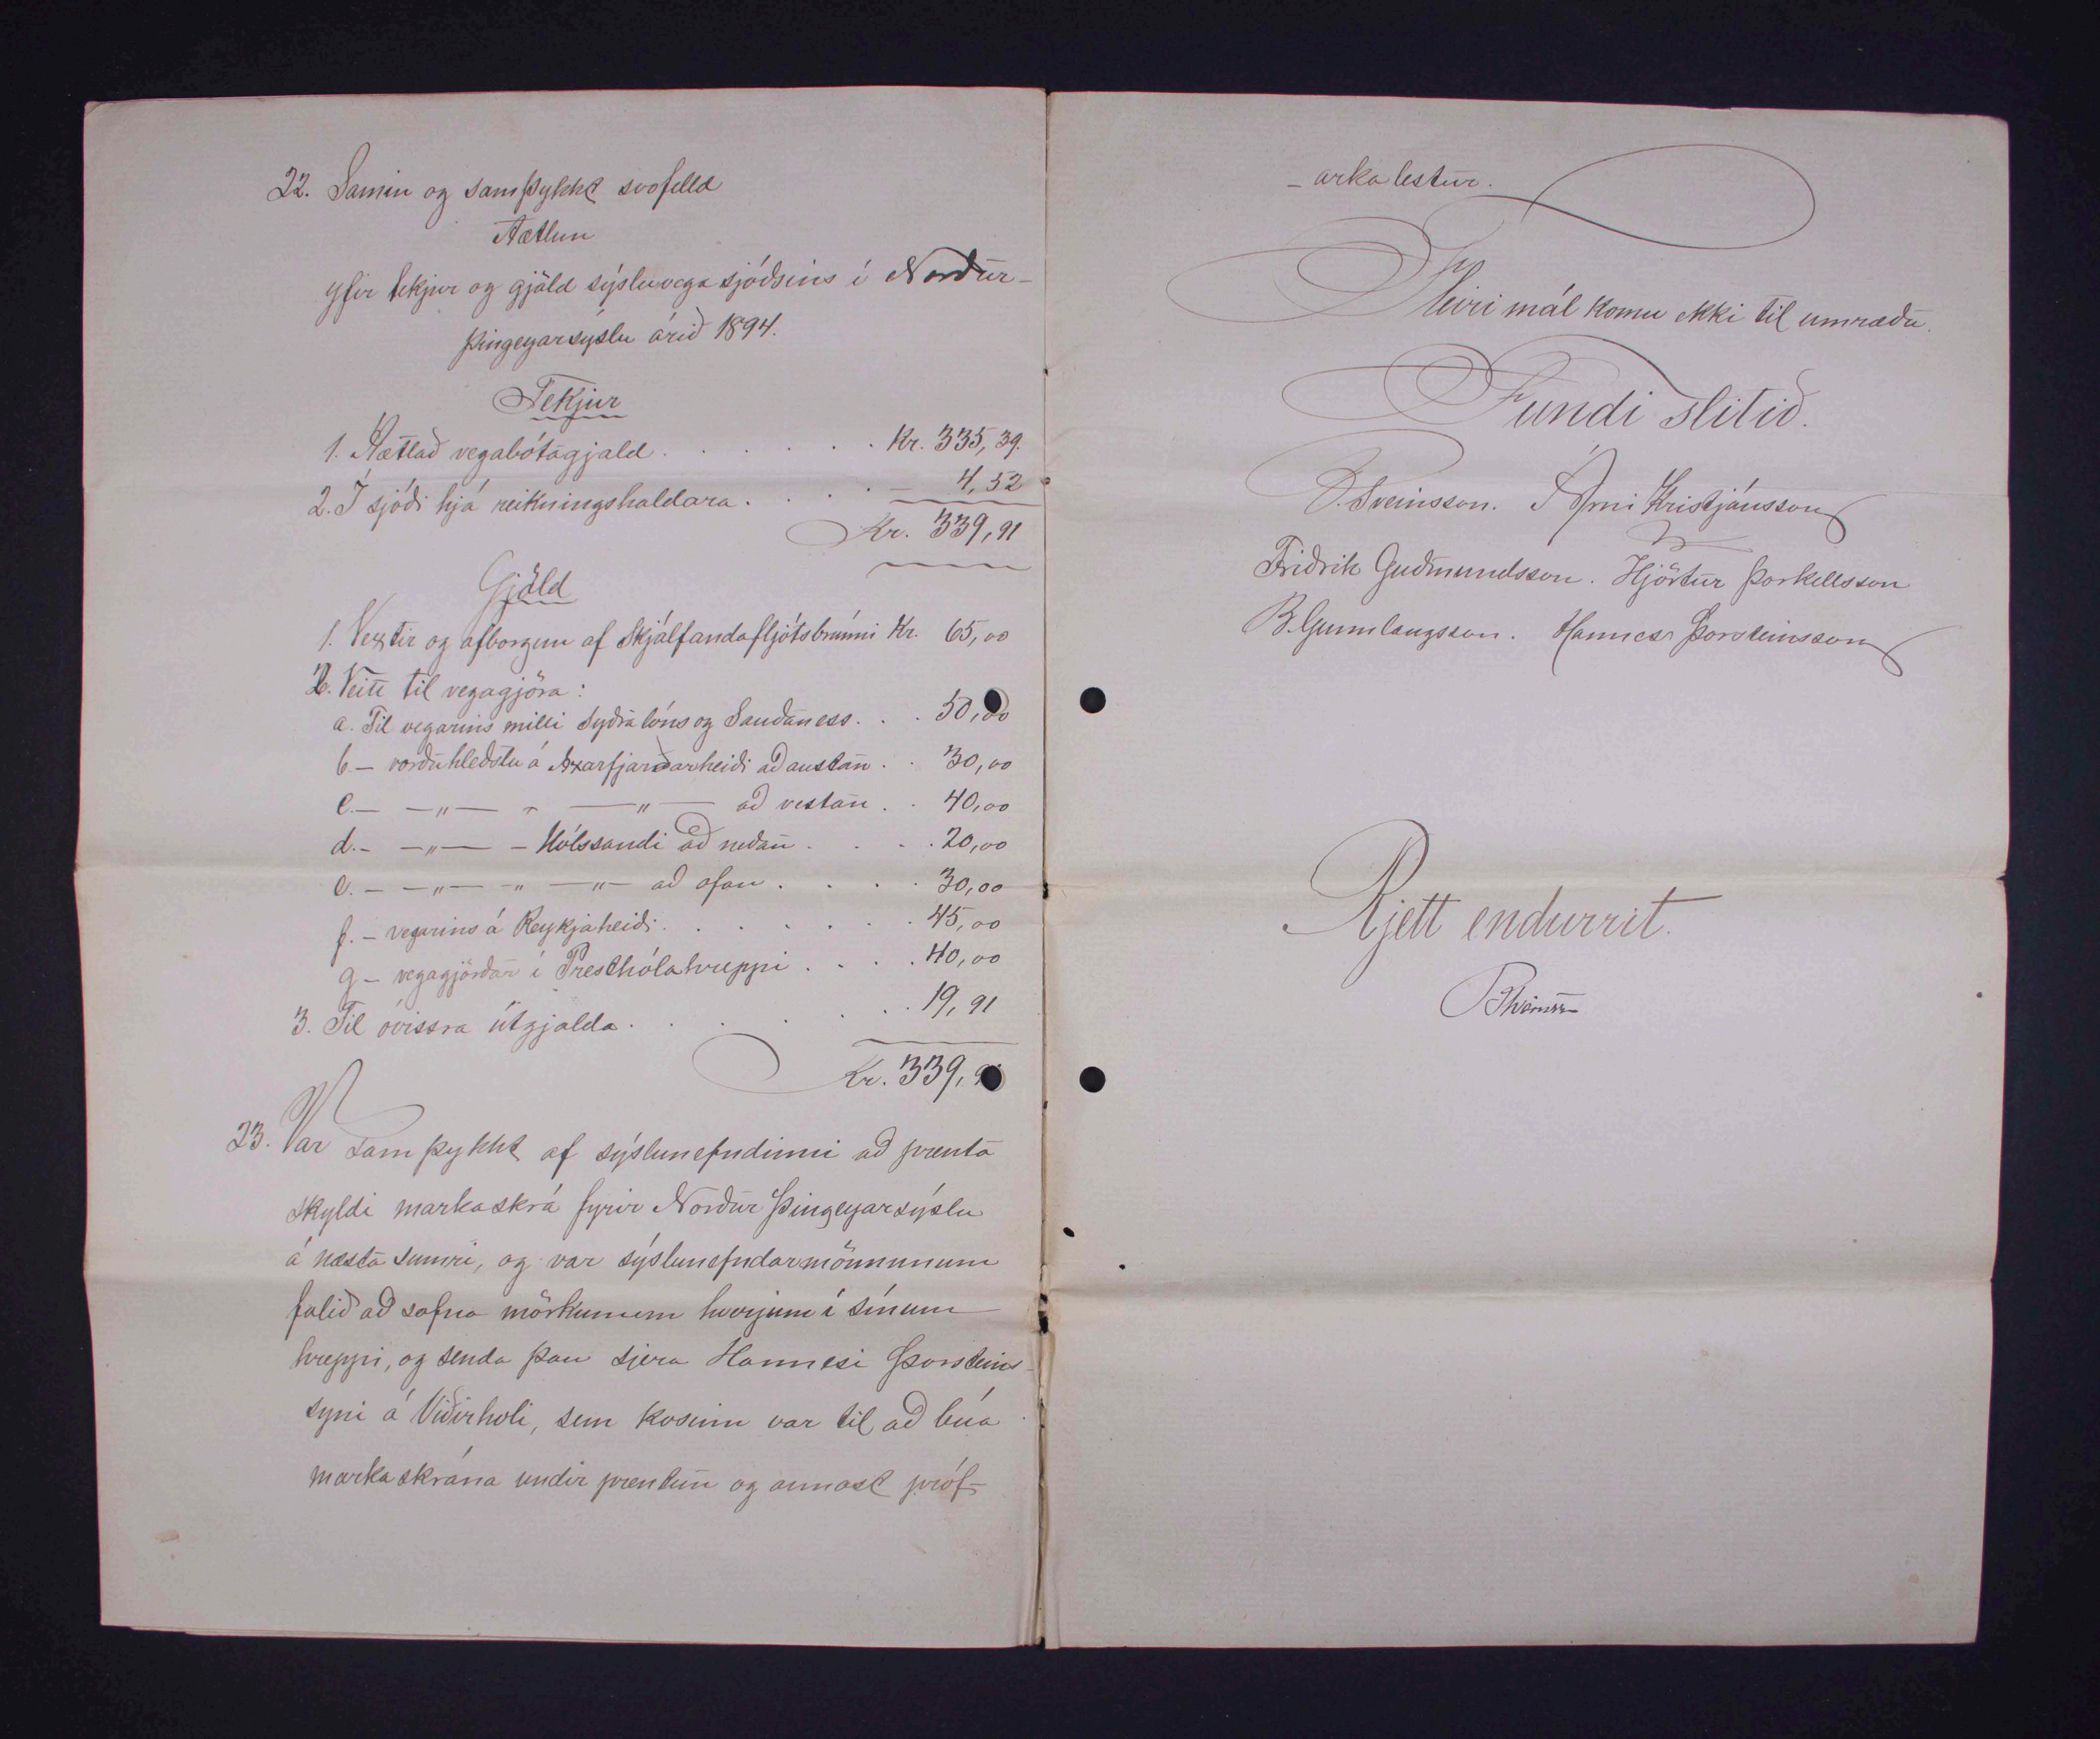 22. Samin og samþykkt svofelld
Áætlun
yfir tekjur og gjöld sýsluvegasjóðsins í Norður-
þingeyarsýslu árið 1894.
Tekjur
1. Áætlað vegabótagjald . . . . . . Kr. 335,39.
2. Í sjóði hjá reikningshaldara . . . . — 4,52
Kr. 339,91
Gjöld
1. Vextir og afborgun af Skjálfandafljótsbrúnni Kr. 65,00
2. Veitt til vegagjörða:
a. Til vegarins milli Syðralóns og Sauðaness . . . 50,00
b — vörðuhleðslu á Axarfjarðarheiði að austan . . 30,00
c. — —„— „ —„— að vestan . . 40,00
d. — —„— — Hólssandi að neðan . . . . 20,00
e. — —„— „ —„— að ofan . . . . 30,00
f. — vegarins á Reykjaheiði . . . . . . 45,00
g — vegagjörðar í Presthólahreppi . . . . 40,00
3. Til óvissra útgjalda . . . . . . 19,91
Kr. 339,91
23. Var samþykkt af sýslunefndinni að prenta
skyldi markaskrá fyrir Norður Þingeyarsýslu
á næsta sumri, og var sýslunefndarmönnunum
falið að safna mörkunum hverjum í sínum
hreppi, og senda þau sjera Hannesi Þorsteins-
syni á Víðirhóli, sem kosinn var til að búa
markaskrána undir prentun og annast próf-
-arkalestur.
Fleiri mál komu ekki til umræðu.
Fundi slitið.
B. Sveinsson. Árni Kristjánsson
Friðrik Guðmundsson. Hjörtur Þorkellsson
B. Gunnlaugsson. Hannes Þorsteinsson
Rjett endurrit.